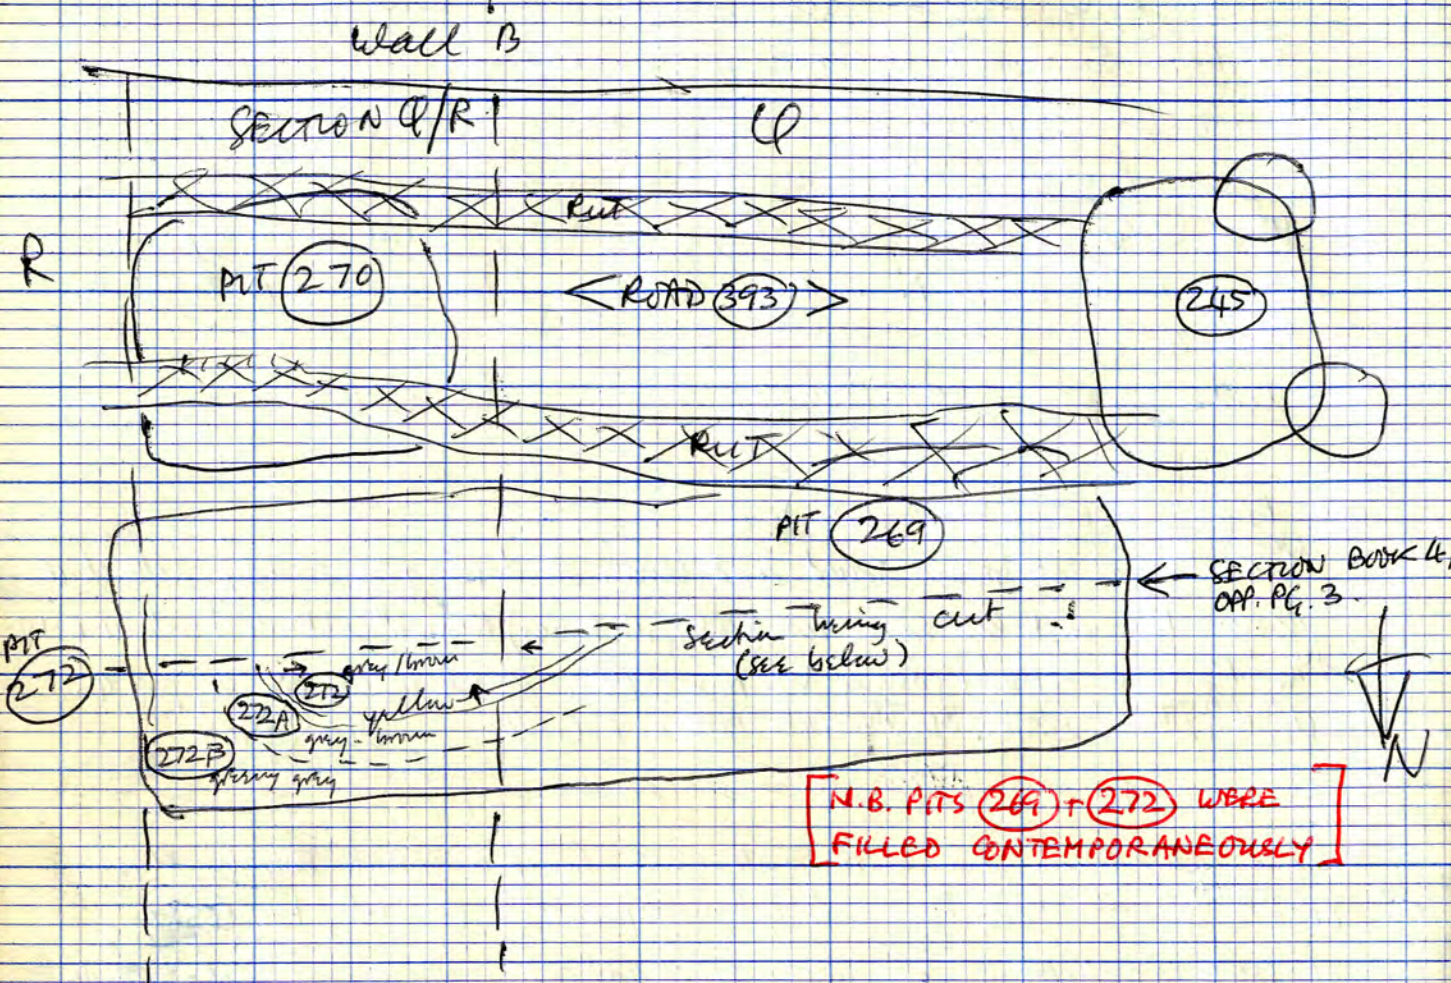 Wall B
SECTION Q/R
Q
RUT
R
PIT 270
<ROAD 393>
245
RUT
PIT 269
SECTION BOOK 4,
OPP. PG. 3.
Section being cut
(see below)
PIT
272
grey/brown
272
yellow
272A
grey-brown
272B
greeny grey
N
[N.B. PITS 269 + 272 WERE
FILLED CONTEMPORANEOUSLY]